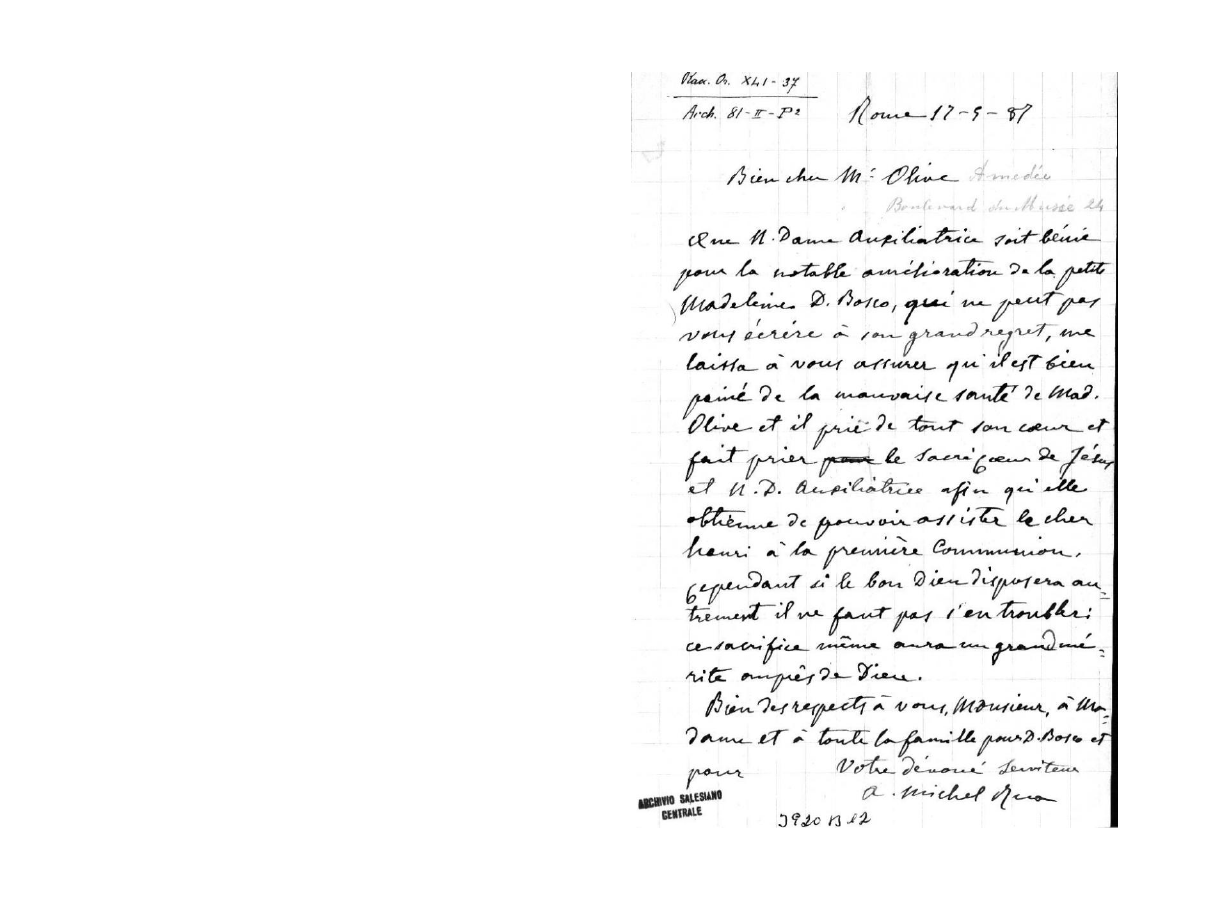 XLI - 37
Arch. 81 - II - P²
Rome 17-5-87
Bien cher Mr Olive Amedée
Boulevard du Musée 24
Que N. Dame Auxiliatrice soit bénie
pour la notable amélioration de la petite
Madeleine. D. Bosco, qui ne peut pas
vous écrére à son grand regret, me
laissa à vous assurer qu'il est bien
peiné de la mauvaise santé de Mad.
Olive et il prie de tout son cœur et
fait prier pour le Sacré Cœur de Jésus
et N. D. Auxiliatrice afin qu'elle
obtienne de pouvoir assister le cher
henri à la première Communion.
Cependant si le bon Dieu disposera au=
trement il ne faut pas s'en troubler:
ce sacrifice même aura un grand mé=
rite auprès de Dieu.
Bien des respects à vous, Monsieur, à Ma=
dame et à toute la famille pour D. Bosco et
pour Votre dévoué Serviteur
a. Michel Rua
ARCHIVIO SALESIANO
CENTRALE
3920 B 12